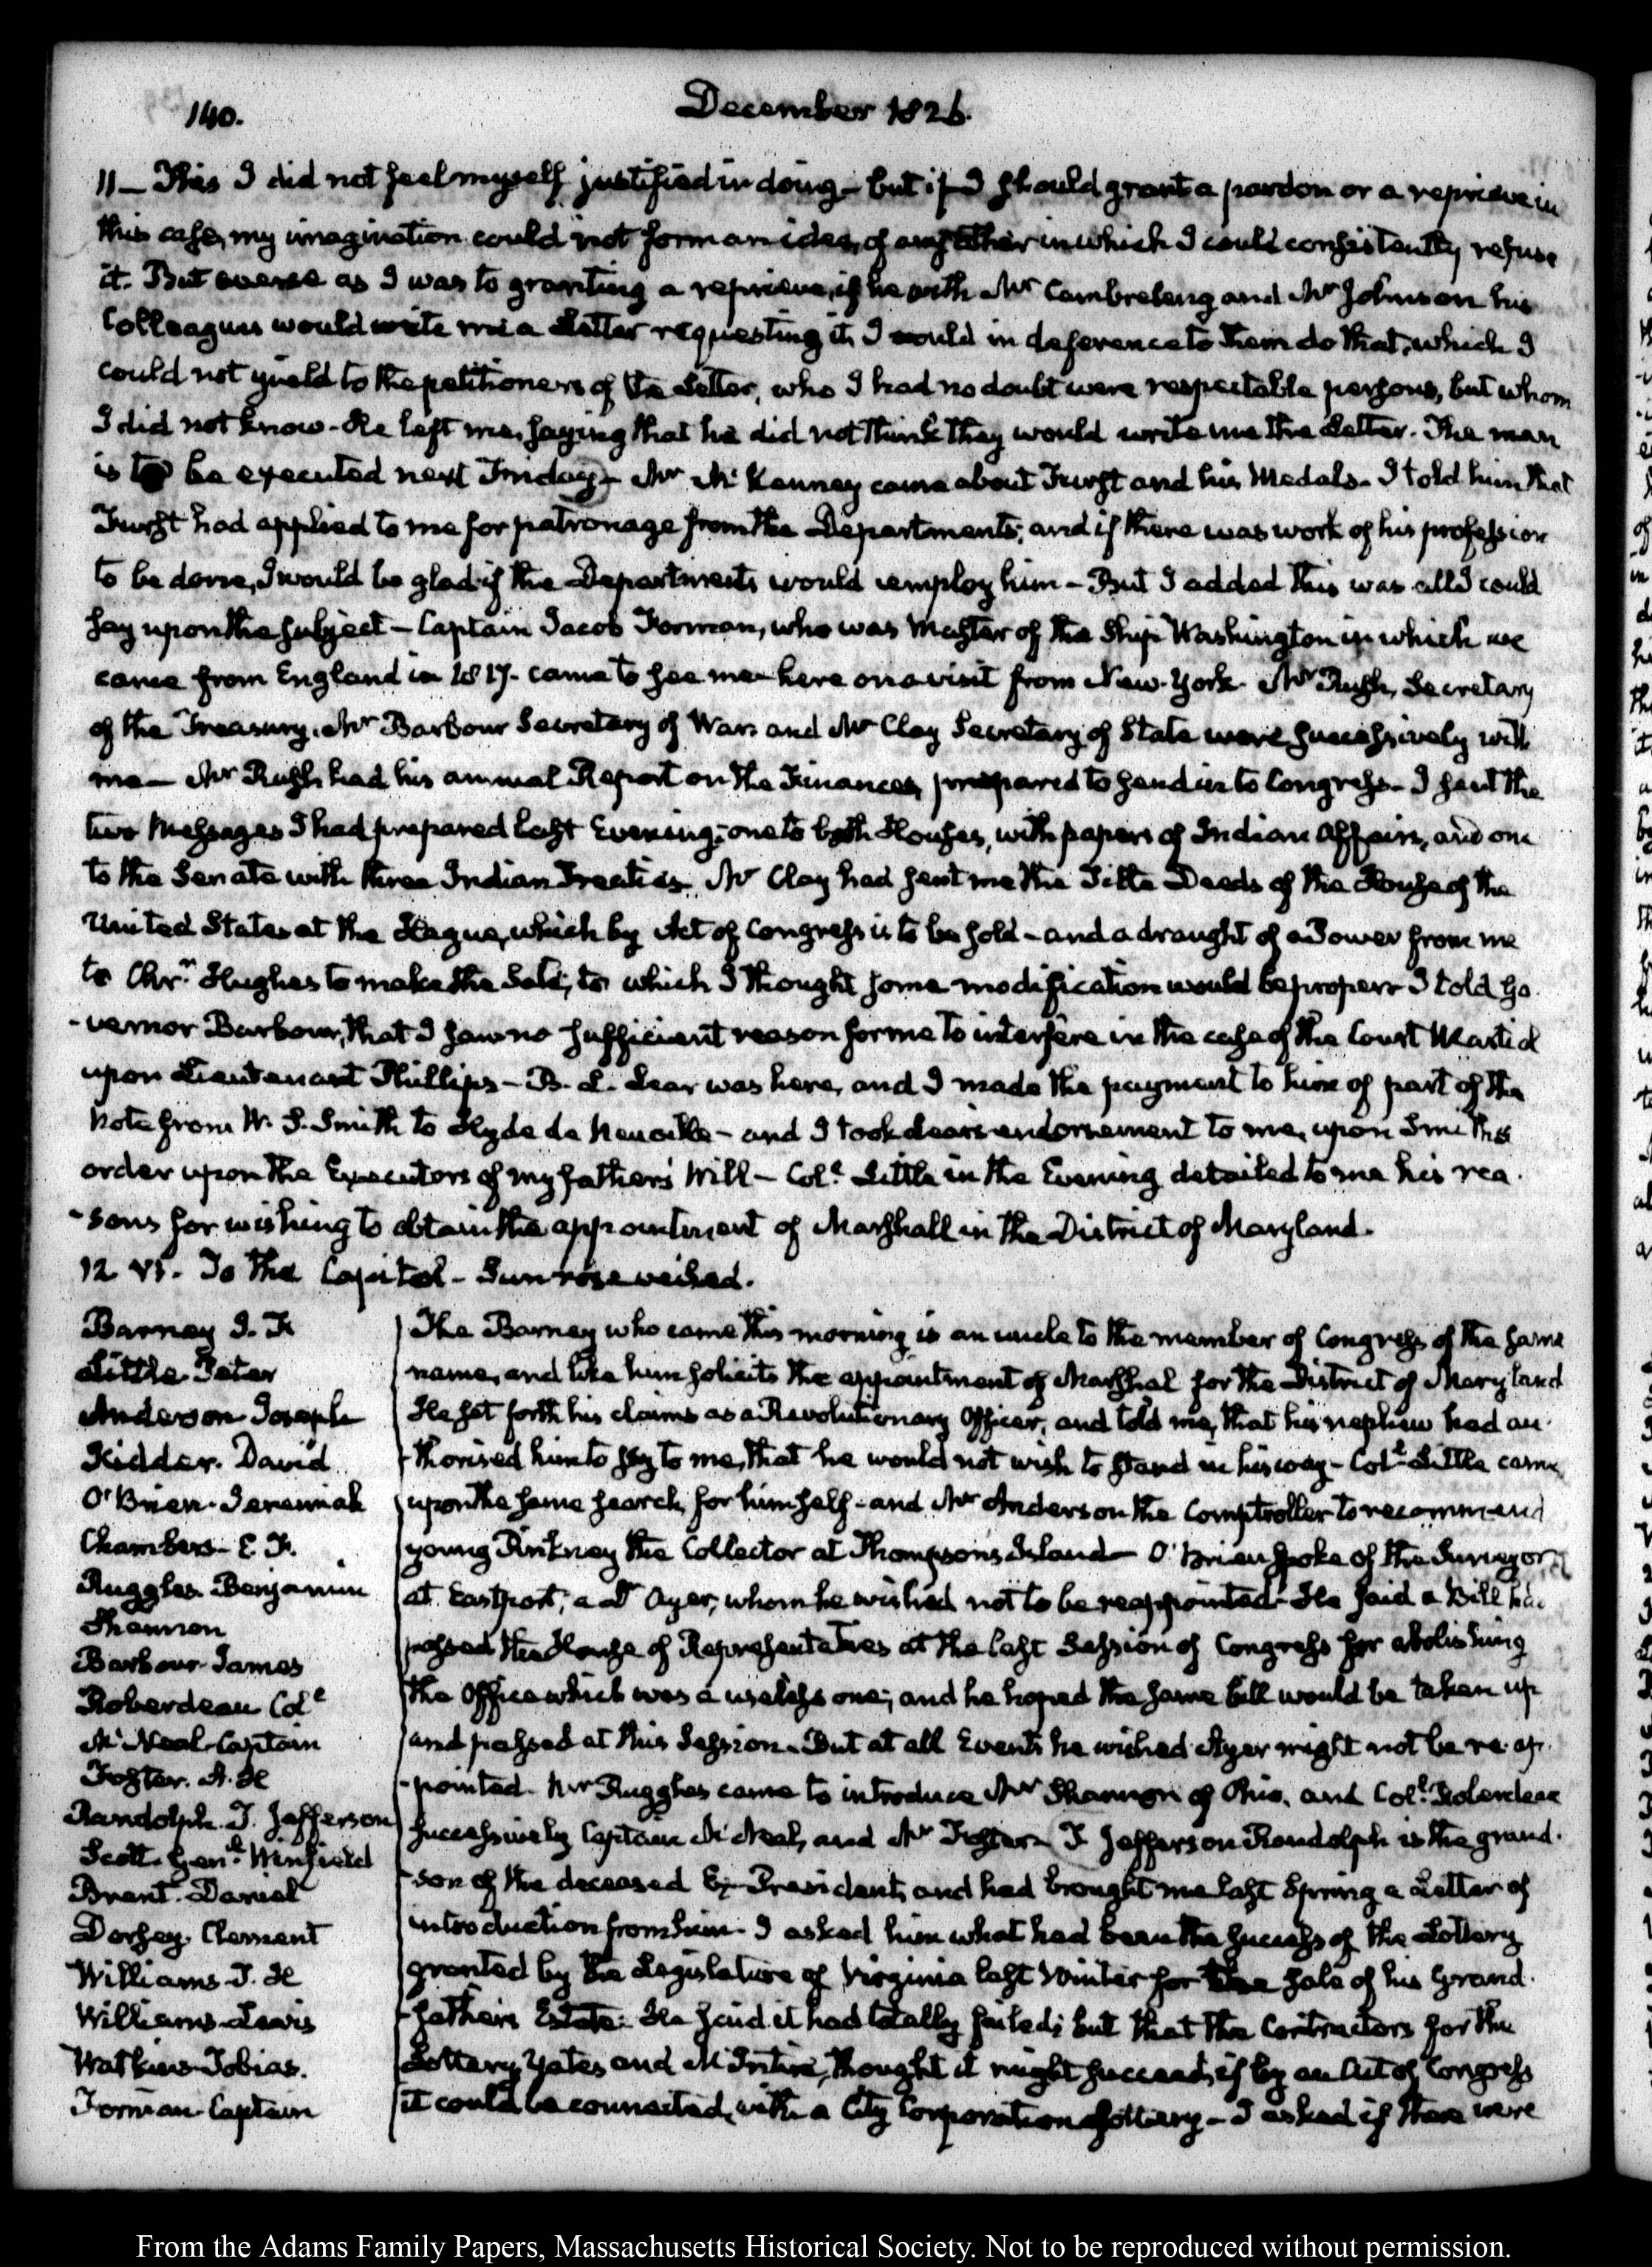 140.
December 1826.
11 — This I did not feel myself justified in doing — but if I should grant a pardon or a reprieve in
this case, my imagination could not form an idea, of any other in which I could consistently refuse
it. But averse as I was to granting a reprieve, if he with Mr Cambreleng and Mr Johnson his
Colleagues would write me a Letter requesting it, I would in deference to them do that, which I
could not yield to the petitioners of the Letter, who I had no doubt were respectable persons, but whom
I did not know - He left me, saying that he did not think they would write me the Letter. The man
is to be executed next Friday — Mr McKenney came about Furst and his Medals - I told him that
Furst had applied to me for patronage from the Departments; and if there was work of his profession
to be done, I would be glad if the Departments would employ him - But I added this was all I could
say upon the subject — Captain Jacob Forman, who was Master of the Ship Washington in which we
came from England in 1817. came to see me here on a visit from New-York. Mr Rush, Secretary
of the Treasury, Mr Barbour Secretary of War and Mr Clay Secretary of State were successively with
me — Mr Rush had his annual Report on the Finances, prepared to send in to Congress - I sent the
two Messages I had prepared last Evening; one to both Houses, with papers of Indian Affairs, and one
to the Senate with three Indian Treaties. Mr Clay had sent me the Title Deeds of the House of the
United States at the Hague, which by Act of Congress is to be sold - and a draught of a Power from me
to Chr. Hughes to make the Sale; to which I thought some modification would be proper - I told Go-
-vernor Barbour, that I saw no sufficient reason for me to interfere in the case of the Court Martial
upon Lieutenant Phillips — B. L. Lear was here, and I made the payment to him of part of the
Note from W. S. Smith to Hyde de Neuville - and I took Lear's endorsement to me, upon Smith's
order upon the Executors of my father's Will — Col. Little in the Evening detailed to me his rea-
-sons for wishing to obtain the appointment of Marshall in the District of Maryland.
12 VI. To the Capitol - Sun rose veiled.
Barney J. H
Little Peter
Anderson Joseph
Kidder. David
O'Brien. Jeremiah
Chambers - E. F.
Ruggles. Benjamin
Shannon
Barbour James
Roberdeau Col
McNeal Captain
Foster. A. H
Randolph. T. Jefferson
Scott. Gen Winfield
Brent. Daniel
Dorsey. Clement
Williams. T. H
Williams Lewis
Watkins Tobias.
Forman Captain
The Barney who came this morning is an uncle to the member of Congress of the same
name, and like him solicits the appointment of Marshal for the District of Maryland
He set forth his claims as a Revolutionary Officer, and told me, that his nephew had au-
-thorised him to say to me, that he would not wish to stand in his way - Col Little came
upon the same search for himself - and Mr Anderson the Comptroller to recommend
young Pinkney the Collector at Thompson's Island — O'Brien spoke of the Surveyor
at Eastport, a Dr Ayer, whom he wished not to be reappointed - He said a Bill had
passed the House of Representatives at the last Session of Congress for abolishing
the Office which was a useless one; and he hoped the same bill would be taken up
and passed at this Session. But at all Events he wished Ayer might not be re-ap-
-pointed. Mr Ruggles came to introduce Mr Shannon of Ohio, and Col. Roberdeau
successively Captain McNeal, and Mr Foster. T. Jefferson Randolph is the grand-
-son of the deceased Ex-President, and had brought me last Spring a Letter of
introduction from him. I asked him what had been the success of the Lottery
granted by the Legislature of Virginia last Winter for the sale of his Grand-
-father's Estate. He said it had totally failed; but that the Contractors for the
Lottery, Yates and McIntire, thought it might succeed, if by an Act of Congress
it could be connected, with a City Corporation Lottery - I asked if there were
From the Adams Family Papers, Massachusetts Historical Society. Not to be reproduced without permission.